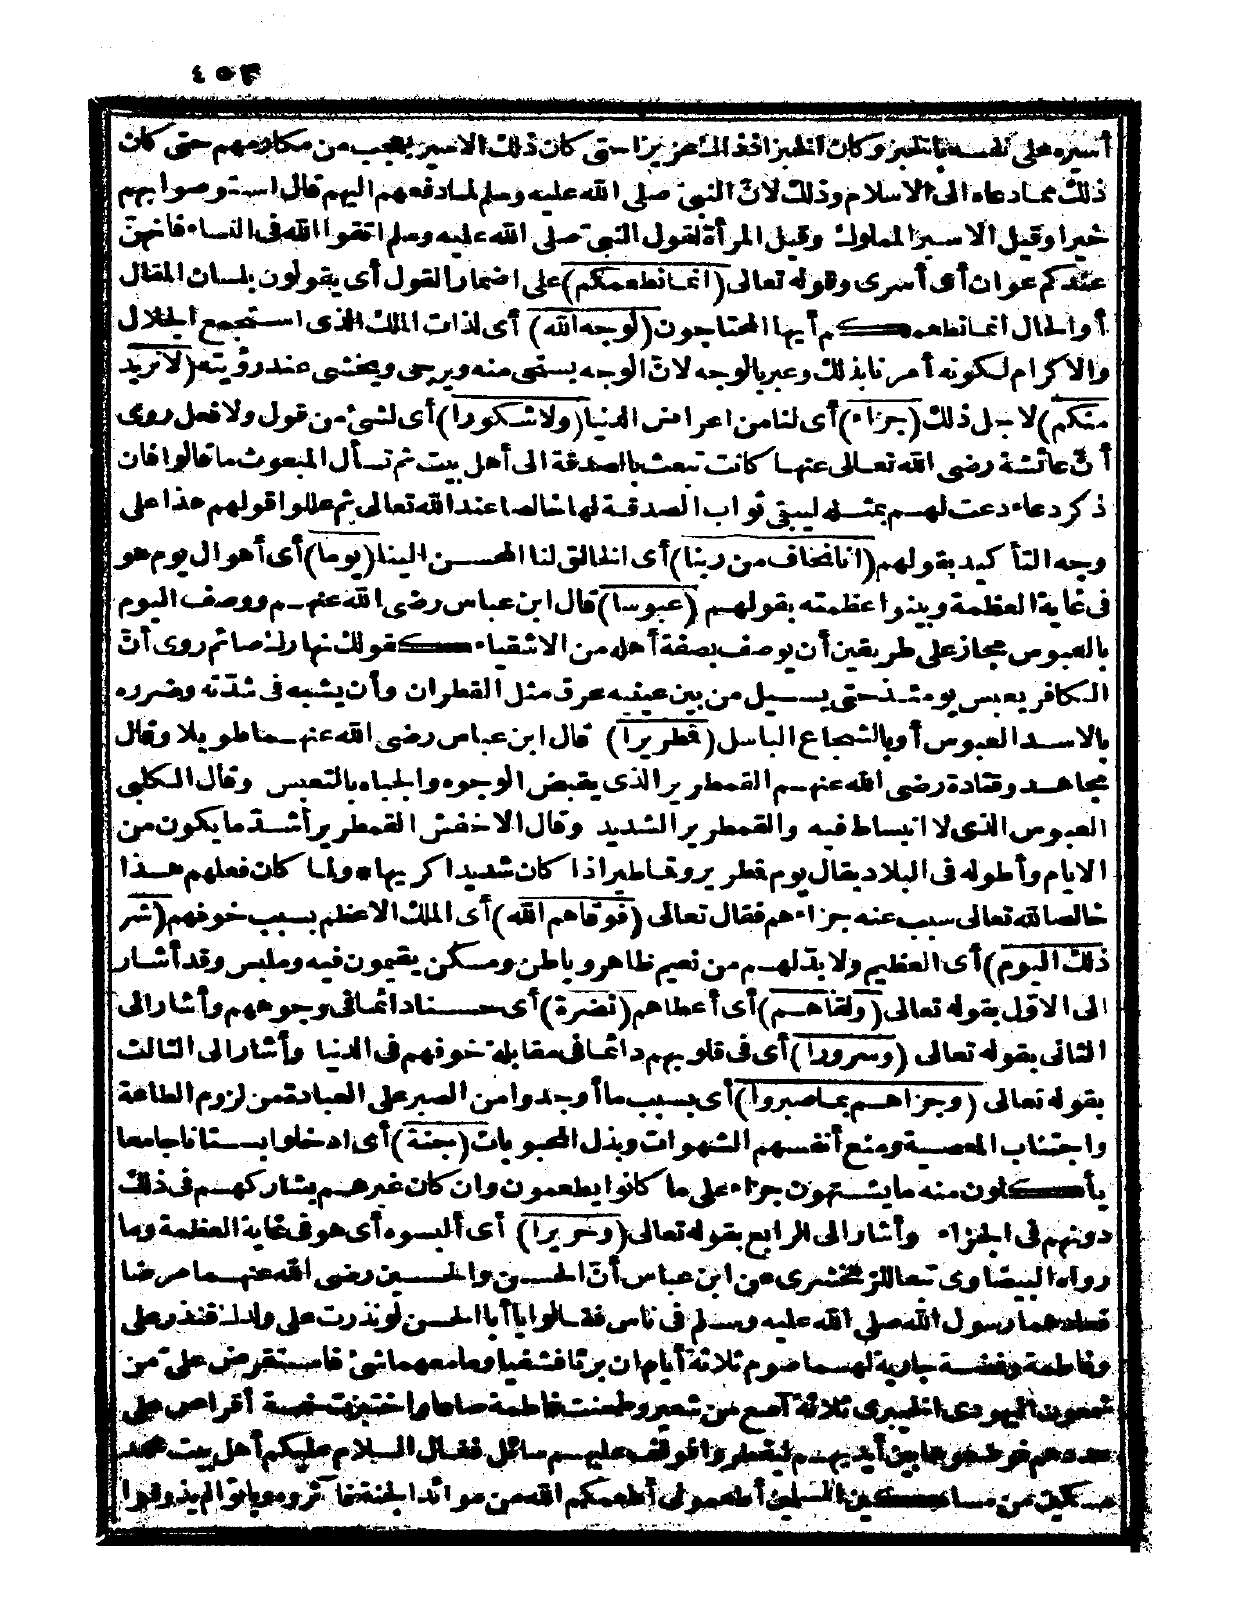 ٤٥٣
أسيره على نفسه بالخبز وكان الخبز اذذاك عزيزا حتى كان ذلك الاسير يعجب من مكارمهم حتى كان
ذلك مما دعاه الى الاسلام وذلك لانّ النبىّ صلى الله عليه وسلم لما دفعهم اليهم قال استوصوا بهم
خيرا وقيل الاسير المملوك وقيل المرأة لقول النبىّ صلى الله عليه وسلم اتقوا الله فى النساء فانهنّ
عندكم عوان أى أسرى وقوله تعالى (انما نطعمكم) على اضمار القول أى يقولون بلسان المقال
أو الحال انما نطعمكم أيها المحتاجون (لوجه الله) أى لذات الملك الذى استجمع الجلال
والاكرام لكونه أمرنا بذلك وعبر بالوجه لانّ الوجه يستحى منه ويرجى ويخشى عند رؤيته (لا نريد
منكم) لاجل ذلك (جزاء) أى لنا من اعراض الدنيا (ولا شكورا) أى لشئ من قول ولا فعل روى
أنّ عائشة رضى الله تعالى عنها كانت تبعث بالصدقة الى أهل بيت ثم تسأل المبعوث ما قالوا فان
ذكر دعاء دعت لهم بمثله ليبقى ثواب الصدقة لها خالصا عند الله تعالى ثم عللوا قولهم هذا على
وجه التأكيد بقولهم (انا نخاف من ربنا) أى الخالق لنا المحسن الينا (يوما) أى أهوال يوم هو
فى غاية العظمة وبينوا عظمته بقولهم (عبوسا) قال ابن عباس رضى الله عنهم ووصف اليوم
بالعبوس مجاز على طريقين أن يوصف بصفة أهله من الاشقياء كقولك نهارك صائم روى أنّ
الكافر يعبس يومئذ حتى يسيل من بين عينيه عرق مثل القطران وأن يشبه فى شدّته وضرره
بالاسد العبوس أو بالشجاع الباسل (قمطريرا) قال ابن عباس رضى الله عنهما طويلا وقال
مجاهد وقتادة رضى الله عنهم القمطرير الذى يقبض الوجوه والجباه بالتعبس وقال الكلبى
العبوس الذى لا انبساط فيه والقمطرير الشديد وقال الاخفش القمطرير أشدّ ما يكون من
الايام وأطوله فى البلاء يقال يوم قمطرير وقماطير اذا كان شديدا كريها * ولما كان فعلهم هذا
خالصا لله تعالى سبب عنه جزاءهم فقال تعالى (فوقاهم الله) أى الملك الاعظم بسبب خوفهم (شر
ذلك اليوم) أى العظيم ولا بدّ لهم من نعيم ظاهر وباطن ومسكن يقيمون فيه وملبس وقد أشار
الى الاوّل بقوله تعالى (ولقاهم) أى أعطاهم (نضرة) أى حسنا دائما فى وجوههم وأشار الى
الثانى بقوله تعالى (وسرورا) أى فى قلوبهم دائما فى مقابلة خوفهم فى الدنيا وأشار الى الثالث
بقوله تعالى (وجزاهم بما صبروا) أى بسبب ما أوجدوا من الصبر على العبادة من لزوم الطاعة
واجتناب المعصية ومنع أنفسهم الشهوات وبذل المحبوبات (جنة) أى ادخلوا بستانا جامعا
يأكلون منه ما يشتهون جزاء على ما كانوا يطعمون وان كان غيرهم يشاركهم فى ذلك
دونهم فى الجزاء وأشار الى الرابع بقوله تعالى (وحريرا) أى ألبسوه أى هو فى غاية العظمة وما
رواه البيضاوى تبعا للزمخشرى عن ابن عباس أنّ الحسن والحسين رضى الله عنهما مرضا
فعادهما رسول الله صلى الله عليه وسلم فى ناس فقالوا يا أبا الحسن لو نذرت على ولدك فنذر على
وفاطمة وفضة جارية لهما صوم ثلاثة أيام ان برئا فشفيا وما معهما شئ فاستقرض علىّ من
شمعون اليهودى الخيبرى ثلاثة آصع من شعير وطحنت فاطمة صاعا واختبزت خمسة أقراص على
عددهم فوضعوها بين أيديهم ليفطروا فوقف عليهم سائل فقال السلام عليكم أهل بيت محمد
مسكين من مساكين المسلمين أطعمونى أطعمكم الله من موائد الجنة فآثروه وباتوا لم يذوقوا